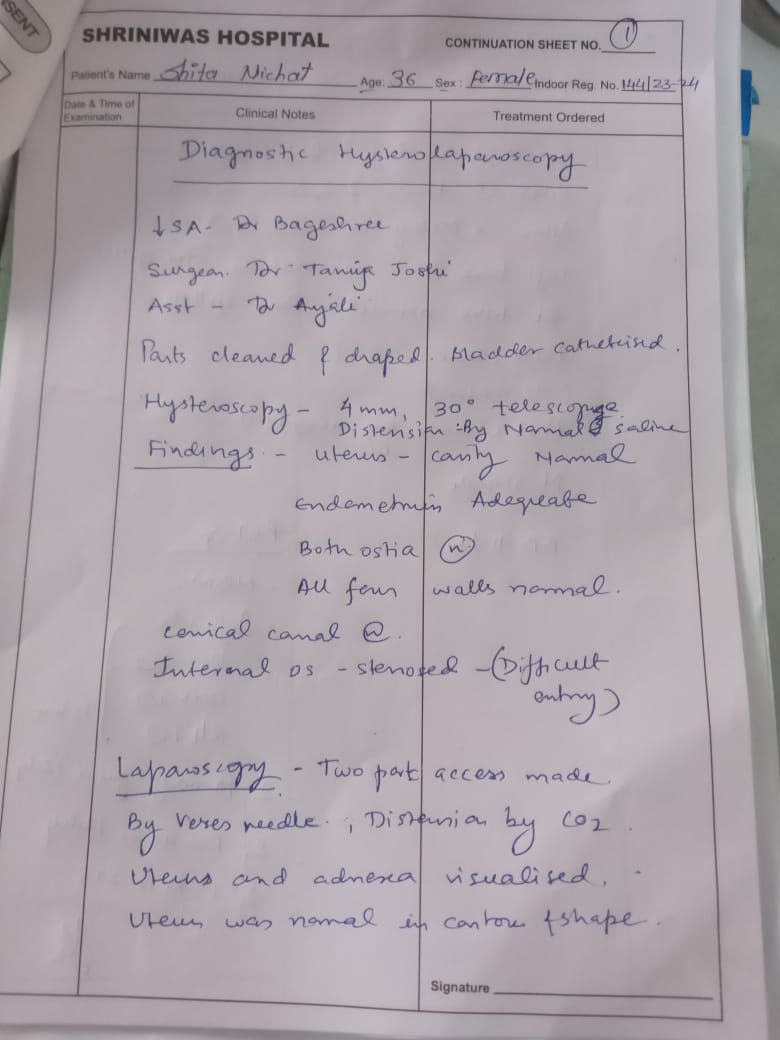 SENT
SHRINIWAS HOSPITAL
CONTINUATION SHEET NO. 1
Patient's Name Shita Nichat Age: 36 Sex: Female Indoor Reg. No. 144/23-24
Date & Time of Examination
Clinical Notes
Treatment Ordered
Diagnostic Hysterolaparoscopy
↓SA - Dr Bageshree
Surgeon. Dr. Tanuja Joshi
Asst - Dr Anjali
Parts cleaned & draped. Bladder catheterised.
Hysteroscopy - 4mm, 30° telescope
Distension :By Normal saline
Findings - Uterus - cavity Normal
Endometrium Adequate
Both ostia (N)
All four walls normal.
Cervical canal (N).
Internal os - stenosed - (Difficult
entry)
Laparoscopy - Two port access made.
By Veres needle. ; Distension by CO2.
Uterus and adnexa visualised.
Uterus was normal in contour & shape.
Signature